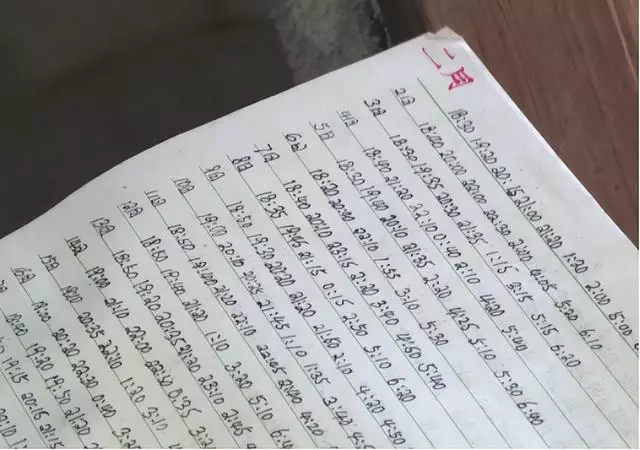 二月
18:20 19:20 20:15 21:00 21:20 1:20 2:00 5:00
2日 18:40 20:00 22:00 22:30 2:00 4:05 5:20 6:10
3日 18:30 19:35 20:30 21:35 1:15 3:15 5:15 6:20
4日 18:40 21:20 22:10 0:40 2:10 4:20 5:40
5日 18:30 19:40 20:40 21:35 2:30 4:25 5:10 5:30 6:40
6日 18:20 20:00 22:10 1:55 3:10 5:30
7日 18:40 20:10 22:15 2:20 3:40 4:50 5:40
8日 18:35 19:45 21:15 0:15 2:50 5:10 6:20
9日 18:50 19:50 20:20 21:20 21:50 2:10 4:20 4:50
10日 19:00 20:10 20:35 21:45 1:10 1:35 3:40
11日 18:50 19:40 21:20 22:10
12日 18:50 19:40 21:20 1:10 3:20 5:10
13日 18:50 19:20 20:25 21:20 23:10 21:45
14日 19:00 21:10 22:00 22:50 0:35
15日 19:00 20:35 22:40 1:20 2:10
16日 19:00 20:20 22:30 0:40
19:20 19:50 21:20
19:15 20:15 21:15